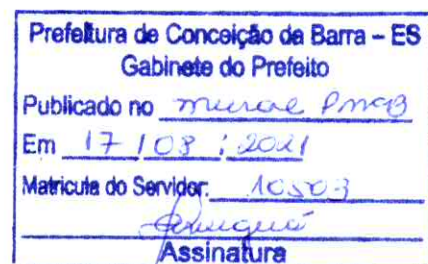 Prefeitura de Conceição da Barra – ES
Gabinete do Prefeito
Publicado no mural PMCB
Em 17 / 08 / 2021
Matricula do Servidor: 10503
Assinatura